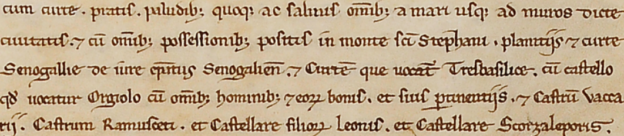 cum curte . pratis . paludib; quoq; ac salinis omib; a mari usq; ad muros dicte
ciuitatis . ⁊ cū omib; possessionib; positis in monte sc̄i Stephani . planitijs ⁊ curte
Senogallie de iure ep̄atus Senogalien̄ . ⁊ Curtem que uocat᷑ Tresbasilice . cū castello
qd̄ uocatur Orgiolo cū omib; hominib; ⁊ eoꝝ bonis . et suis ꝑtinentijs . ⁊ Castrū Vacca
rij . Castrum Ramusceti . et Castellare filioꝝ Leonis . et Castellare Scorzaleporis .